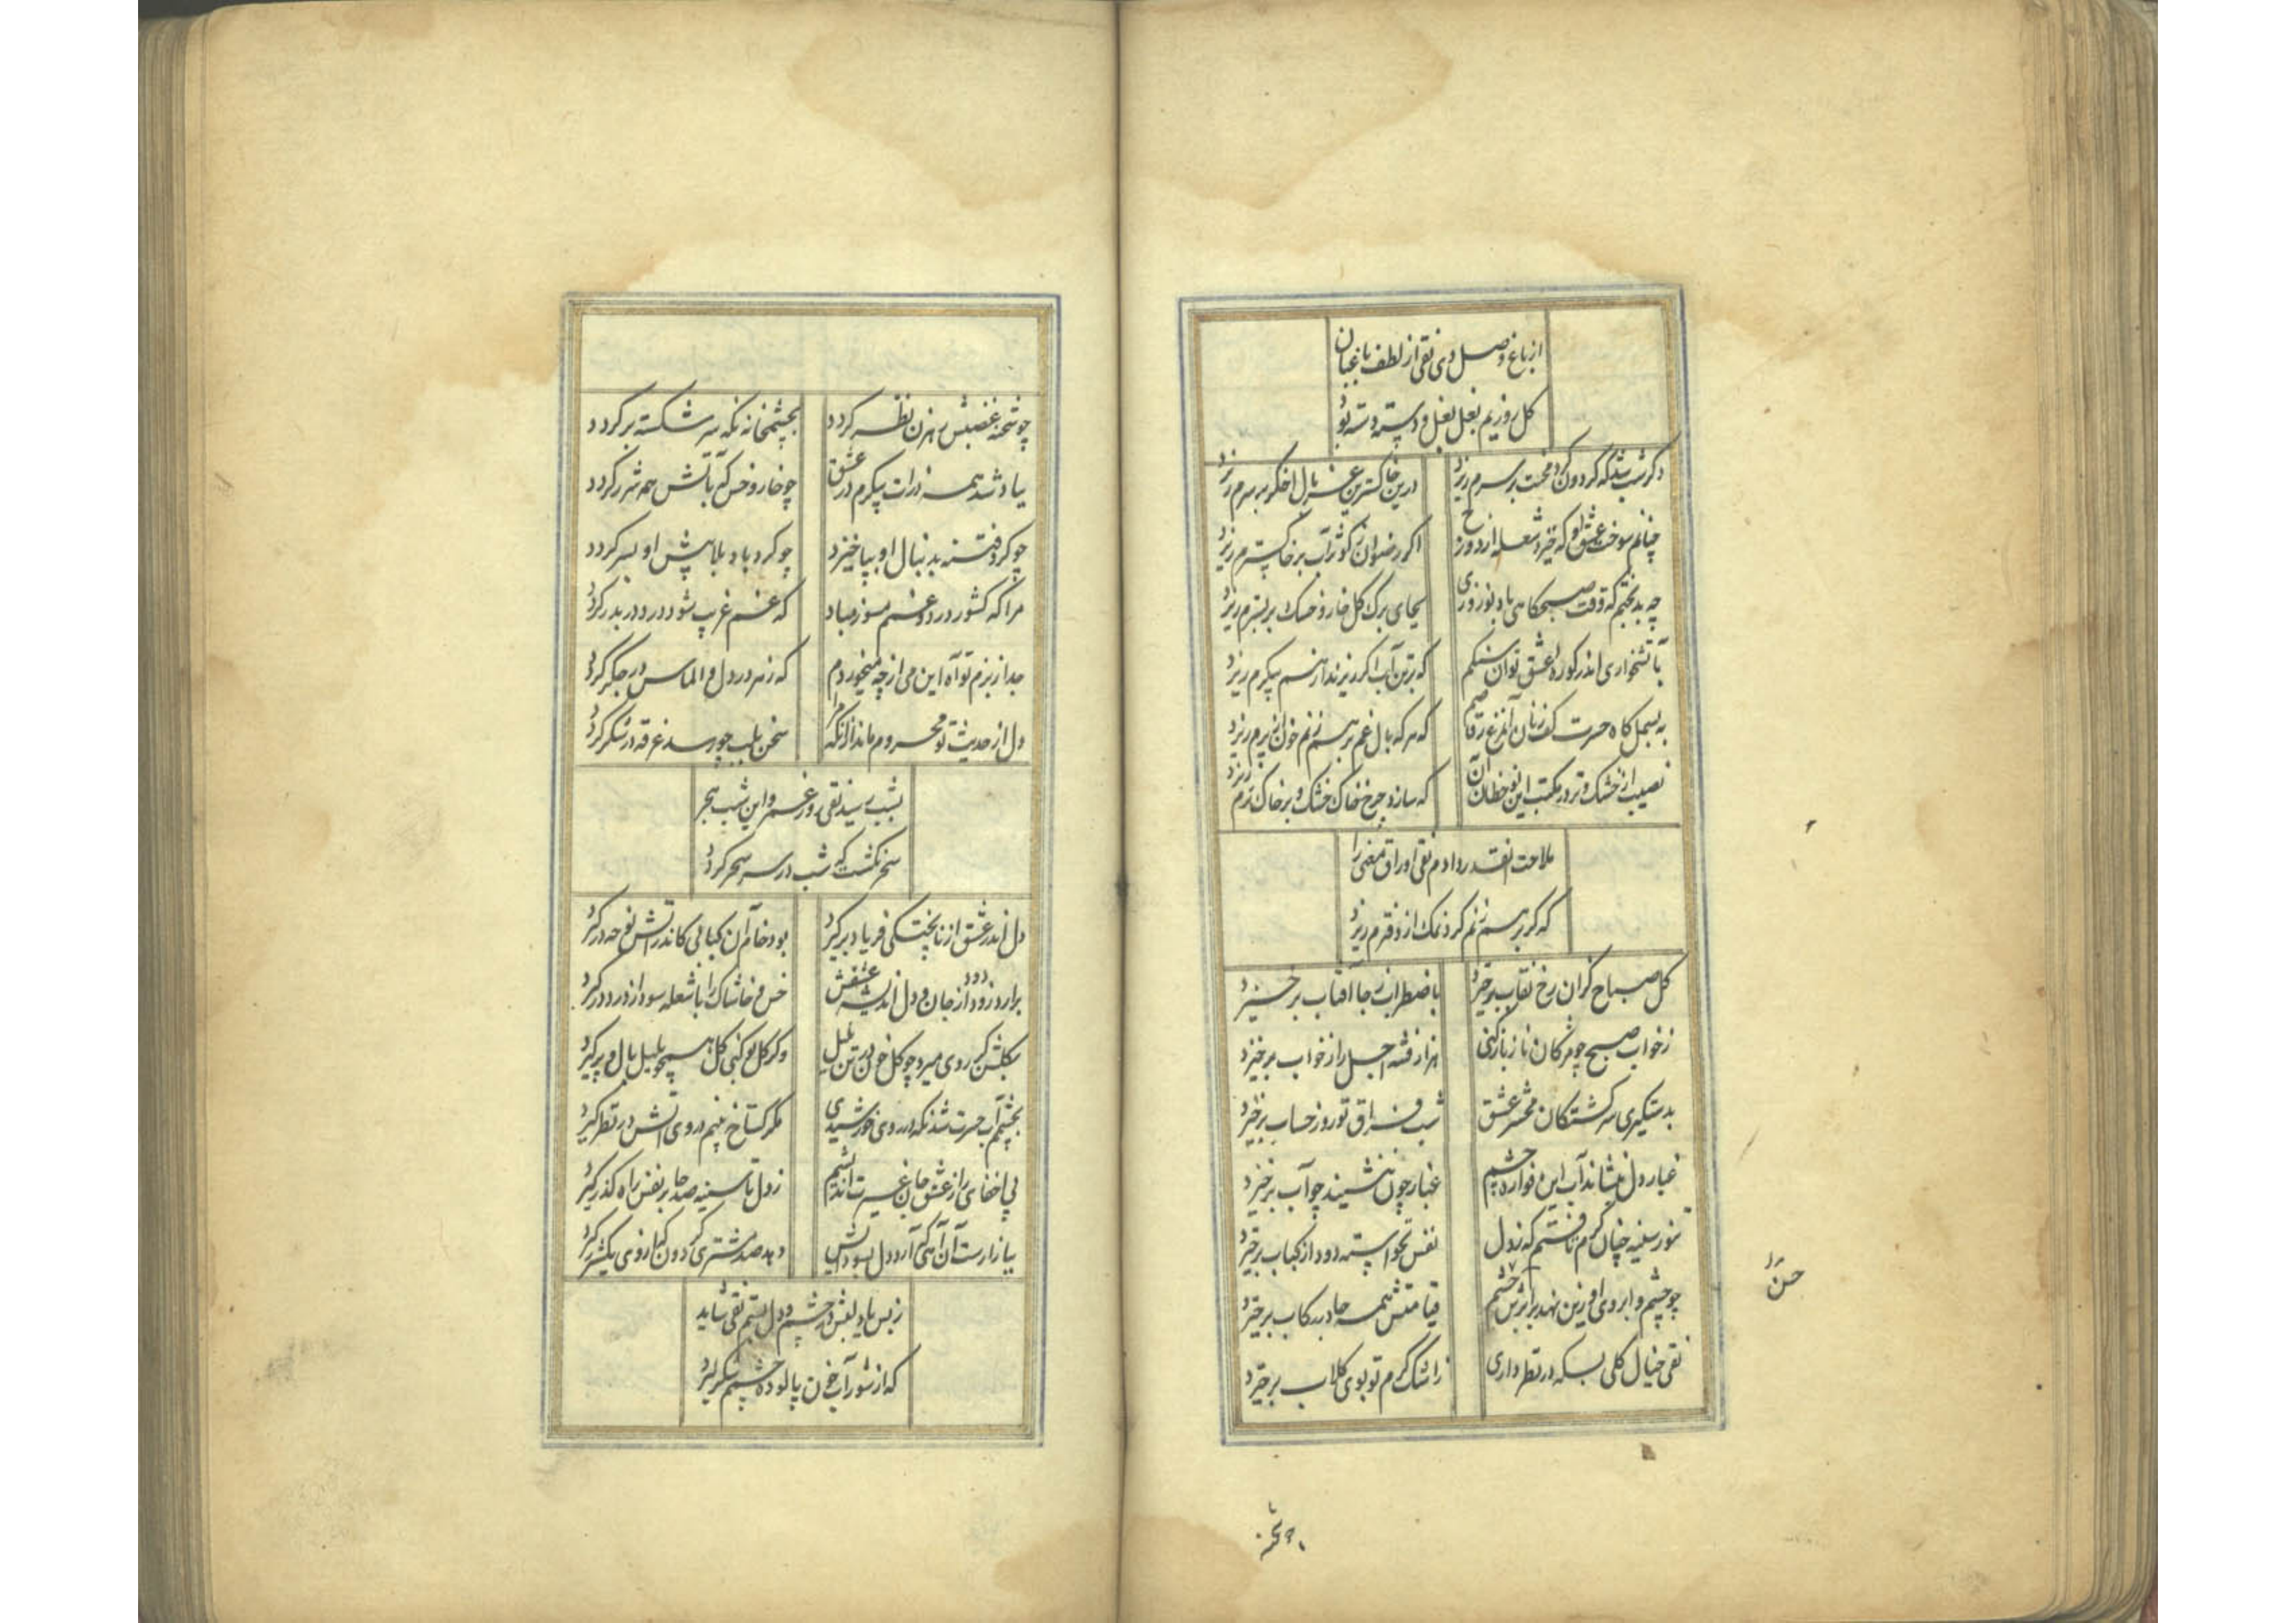 از باغ وصل وی نقی از لطف باغبان
گل روزیم بغل بغل و دسته دسته بود
دگر شب شد که گردون گرد محنت بر سرم ریزد
درین خاکستری غربال اخگر بر سرم ریزد
چنانم سوخت عشق او که خیزد شعله از دوزخ
اگر رضوان ز کوثر آب بر خاکسترم ریزد
چه بدبختم که وقت صبحگاهی باد نوروزی
بجای برگ گل خار و خسک بر بسترم ریزد
بآتشخواری اندر کوره عشق تو آن سنگم
که بر من آب اگر ریزند از هم پیکرم ریزد
به بسمل گاه حسرت کف زنان آن مرغ رقاصم
که هر گه بال غم بر هم زنم خون از پرم ریزد
نصیب از خشک و تر در مکتب این نوخطان آن
که سازد چرخ خاک خشک و بر خاک ترم ریزد
ملاحت آنقدر دادم نقی اوراق معنی را
که گر بر هم زنم گرد نمک از دفترم ریزد
گل صباح کزان رخ نقاب برخیزد
باضطراب ز جا آفتاب برخیزد
ز خواب صبح چو مژگان ناز باز کنی
هزار فتنه اجل را ز خواب برخیزد
بدستگیری سرگشتگان محشر عشق
شب فراق تو روز حساب برخیزد
غبار دل ننشاند آب این فواره چشم
غبار چون ننشیند چو آب برخیزد
تنور سینه چنان گرم تافتم که ز دل
نفس نخواسته دود از کباب برخیزد
چو چشم و ابروی او زین نهد بر ابرش خشم
قیامتش همه جا در رکاب برخیزد
نقی خیال گلی بسکه در نظر داری
ز اشک گرم تو بوی گلاب برخیزد
حسن
چو شحنه
چو شحنه غضبش رهزن نظر گردد
بچشمخانه نگه سر شکسته برگردد
بیاد شد همه ذرات پیکرم در عشق
چو خار و خس که بآتش همه شرر گردد
چو گرد فتنه بدنبال او بپا خیزد
چو گردباد بلا پیش او بسر گردد
مرا که کشور درد و غمم مسوز مباد
که غم غریب شود درد در بدر گردد
جدا ز بزم تو آه این می از چه میخوردم
که زهر در دل و الماس در جگر گردد
دل از حدیث تو محروم ماند از آنکه مرا
سخن بلب چو رسد غرقه در شکر گردد
بشب رسید نقی روز عمر و این شب هجر
سحر نگشت که شب در سر سحر گردد
دل اندر عشق از ناپختگی فریاد برگیرد
بود خام آن کبابی کاندر آتش نوحه درگیرد
برآرد زود دود از جان و دل اندیشه عشقش
خس و خاشاک را با شعله سودا زود درگیرد
بگلشن گر روی میرد چو گل خون در تن بلبل
وگر گل بو کنی گل همچو بلبل بال و پر گیرد
بچشمم آب حسرت شد نگه در روی خورشیدی
مگر گستاخ بینم در وی آتش در نظر گیرد
پی اخفای راز عشق جان غیرت اندیشم
ز دل تا سینه صد جا بر نفس راه گذر گیرد
ببازارت آن آهی که آرد دل بسودایش
دهد صد مشتری گردون که از وی یک شرر گیرد
ز بس یاد لبش در چشم و دل بستم نقی شاید
که از شورآب خون پالوده چشمم شکر گیرد